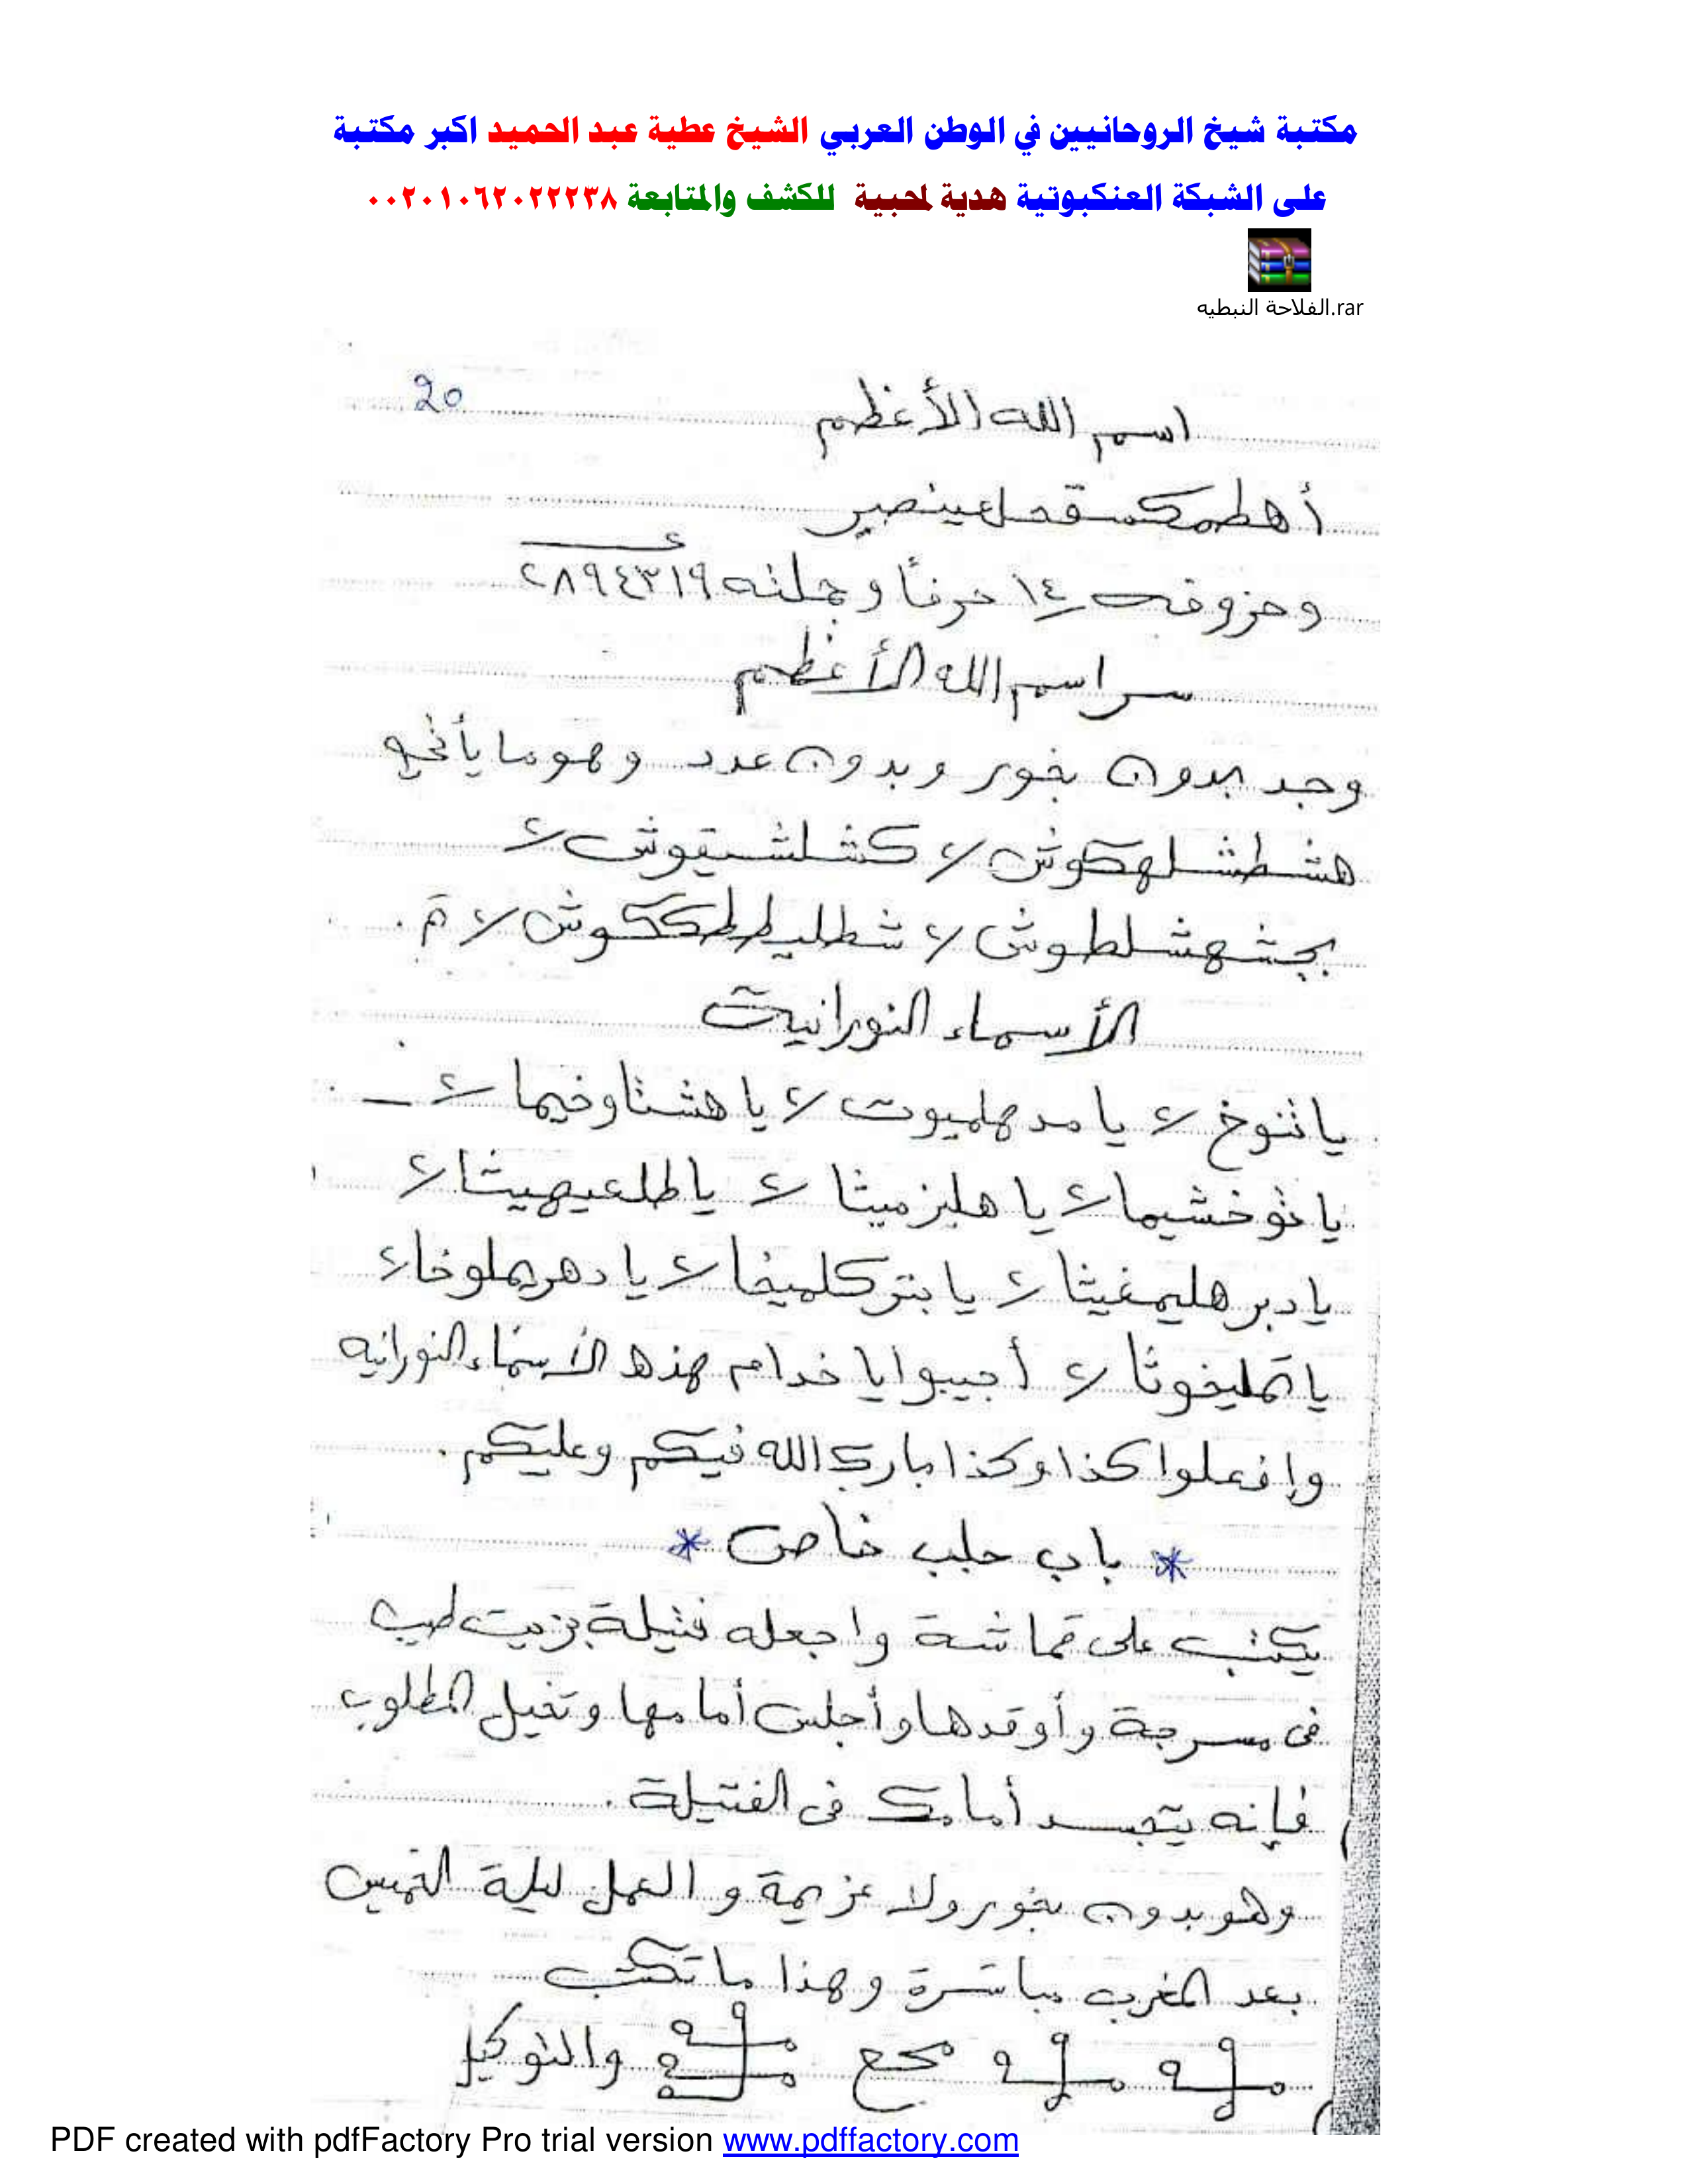 مكتبة شيخ الروحانيين في الوطن العربي الشيخ عطية عبد الحميد اكبر مكتبة
على الشبكة العنكبوتية هدية لمحبية للكشف والمتابعة ٠٠٢٠١٠٦٢٠٢٢٢٣٨
الفلاحة النبطيه.rar
20
اسم الله الأعظم
أهطمكسقحلعينصير
وحروفه ١٤ حرفاً وجملته ٢٨٩٤٣١٩
سر اسم الله الأعظم
وجد بدون بخور وبدون عدد وهو ما يأتي
هشطشلهكوش ٧ كشلشيقوش ٧
بجشهشلطوش ٧ شطليططككوش ٧ تم.
الأسماء النورانية
يا نوخ ٧ يا مدهلميوت ٧ يا هشتاوخيما ٧
يا نوخشيما ٧ يا هليزميثا ٧ يا طلعيهيثا ٧
يا دبرهليمغيثا ٧ يا بتركلميخا ٧ يا دهريملوخا ٧
يا تمليخوثا ٧ أجيبوا يا خدام هذه الأسماء النورانيه
وافعلوا كذا وكذا بارك الله فيكم وعليكم.
* باب جلب خاص *
يكتب على قماشة واجعله فتيلة بزيت طيب
فى مسرجة وأوقدها وأجلس أمامها وتخيل المطلوب
فإنه يتجسد أمامك فى الفتيلة.
وهو بدون بخور ولا عزيمة والعمل ليلة الخميس
بعد المغرب مباشرة وهذا ما تكتب
والتوكيل
PDF created with pdfFactory Pro trial version www.pdffactory.com